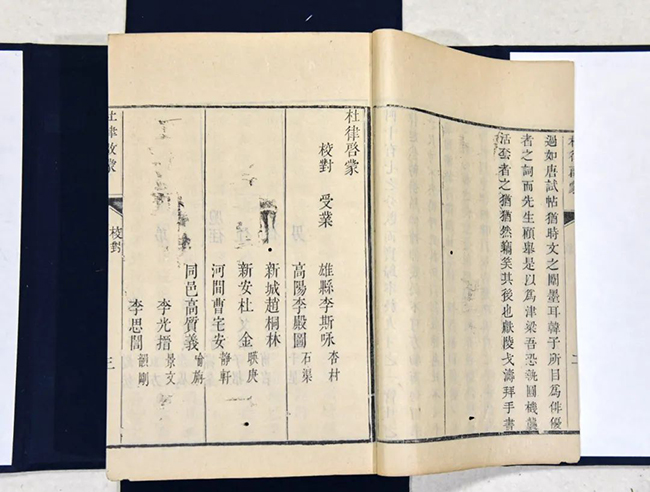 過如唐試帖猶時文之闈墨耳韓子所目爲俳優
者之詞而先生顧舉是以爲津梁吾恐執圓機襲
活套者之猶猶然竊笑其後也獻陵戈濤拜手書
杜律啓蒙
校對 受業 雄縣李斯咏 杏村
高陽李殿圖 石渠
新城趙桐林
新安杜 金 映庚
河間曹宅安 靜軒
同邑高質義
李光搢 景文
李思閻 毅剛
杜律啟蒙 校對 三